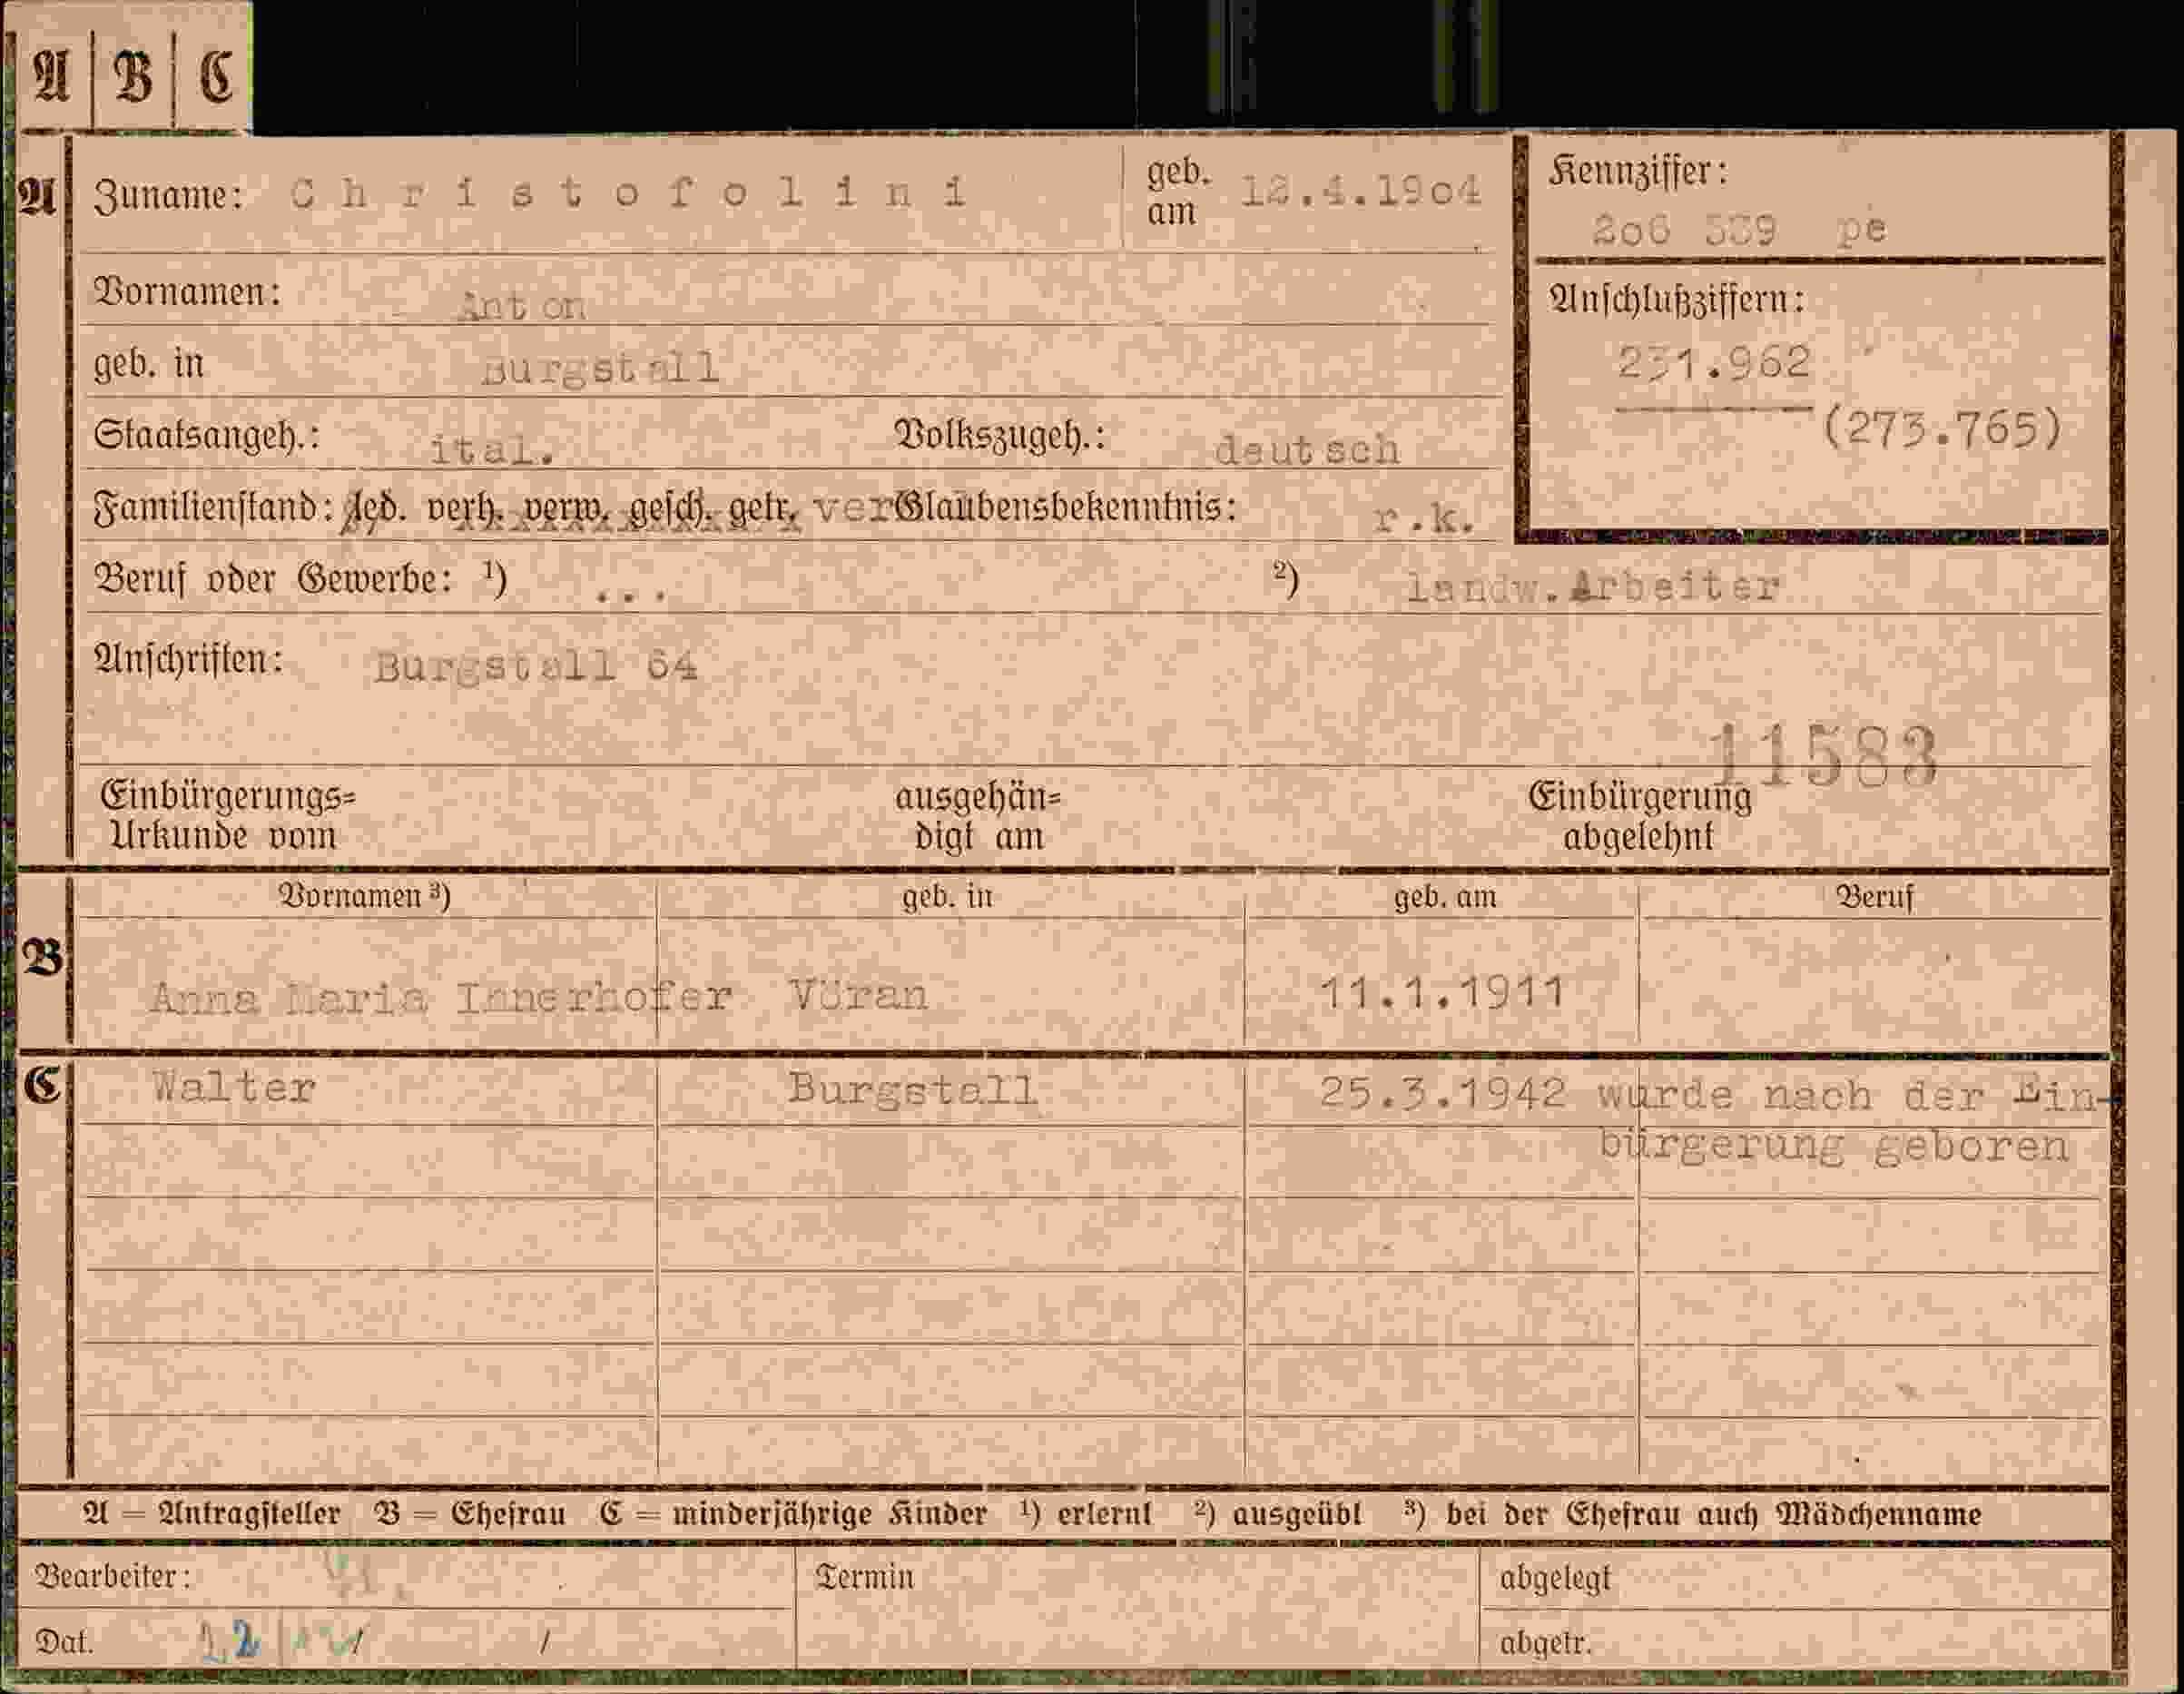 A | B | C
A Zuname: Christofolini geb. am 12.4.1904 Kennziffer:
2o6 539 pe
Vornamen: Anton Anschlußziffern:
geb. in Burgstall 231.962
Staatsangeh.: ital. Volkszugeh.: deutsch (273.765)
Familienstand: led. verh. verw. gesch. getr. ver Glaubensbekenntnis: r.k.
Beruf oder Gewerbe: ¹) ... ²) landw.Arbeiter
Anschriften: Burgstall 64
11583
Einbürgerungs= ausgehän= Einbürgerung
Urkunde vom digt am abgelehnt
Vornamen ³) geb. in geb. am Beruf
B
Anna Maria Innerhofer Vöran 11.1.1911
C Walter Burgstall 25.3.1942 wurde nach der Ein-
bürgerung geboren
A = Antragsteller B = Ehefrau C = minderjährige Kinder ¹) erlernt ²) ausgeübt ³) bei der Ehefrau auch Mädchenname
Bearbeiter: Termin abgelegt
Dat. / / abgetr.